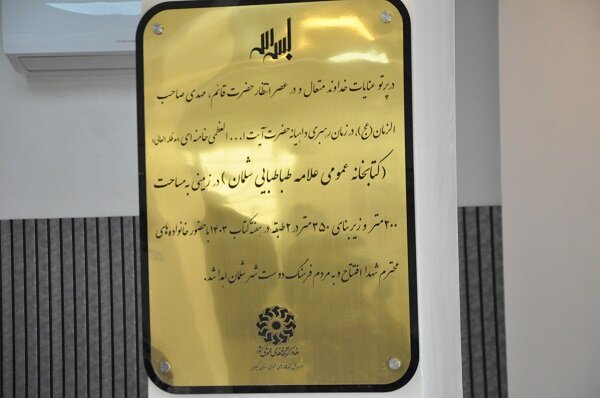 بسم الله
در پرتو عنایات خداوند متعال و در عصر انتظار حضرت قائم، مهدی صاحب
الزمان (عج)، در زمان رهبری داهیانه حضرت آیت ا... العظمی خامنه ای (مدظله العالی)
(کتابخانه عمومی علامه طباطبایی شلمان) در زمینی به مساحت
۲۰۰ متر و زیربنای ۳۵۰ متر در ۲ طبقه در هفته کتاب ۱۴۰۳ با حضور خانواده های
محترم شهدا افتتاح و به مردم فرهنگ دوست شهر شلمان اهدا شد.
نهاد کتابخانه های عمومی کشور